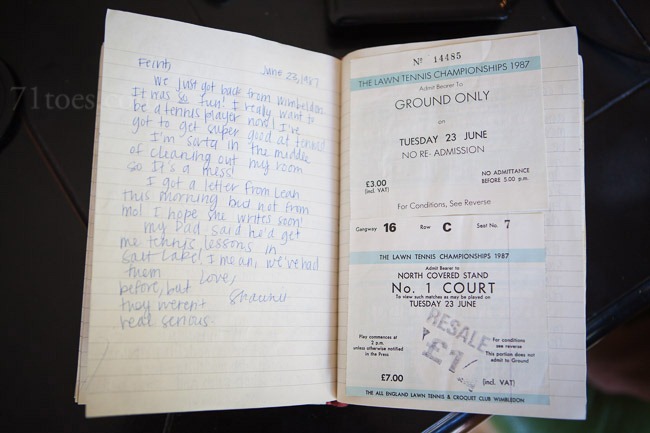 71toes.c
Feinh
June 23, 1987
We just got back from wimbeldon.
It was so fun! I really want to
be a tennis player now! I've
got to get super good at tennis!
I'm sorta in the middle
of cleaning out my room
so It's a mess!
I got a letter from Leah
this morning but not from
mol I hope she writes soon!
my Dad said he'd get
me tennis lessons in
salt Lake! I mean, we've had
them before, but
they weren't
real serious.
Love,
Shawni
Nº 14485
THE LAWN TENNIS CHAMPIONSHIPS 1987
Admit Bearer To
GROUND ONLY
on
TUESDAY 23 JUNE
NO RE-ADMISSION
£3.00
(inc. VAT)
NO ADMITTANCE
BEFORE 5.00 p.m.
For Conditions, See Reverse
Gangway 16 Row C Seat No. 7
THE LAWN TENNIS CHAMPIONSHIPS 1987
Admit Bearer to
NORTH COVERED STAND
No. 1 COURT
To view such matches as may be played on
TUESDAY 23 JUNE
RESALE
£1
Play commences at
2 p.m.
unless otherwise notified
in the Press
For conditions
see reverse
This portion does not
admit to Ground
£7.00
(incl. VAT)
THE ALL ENGLAND LAWN TENNIS & CROQUET CLUB WIMBLEDON